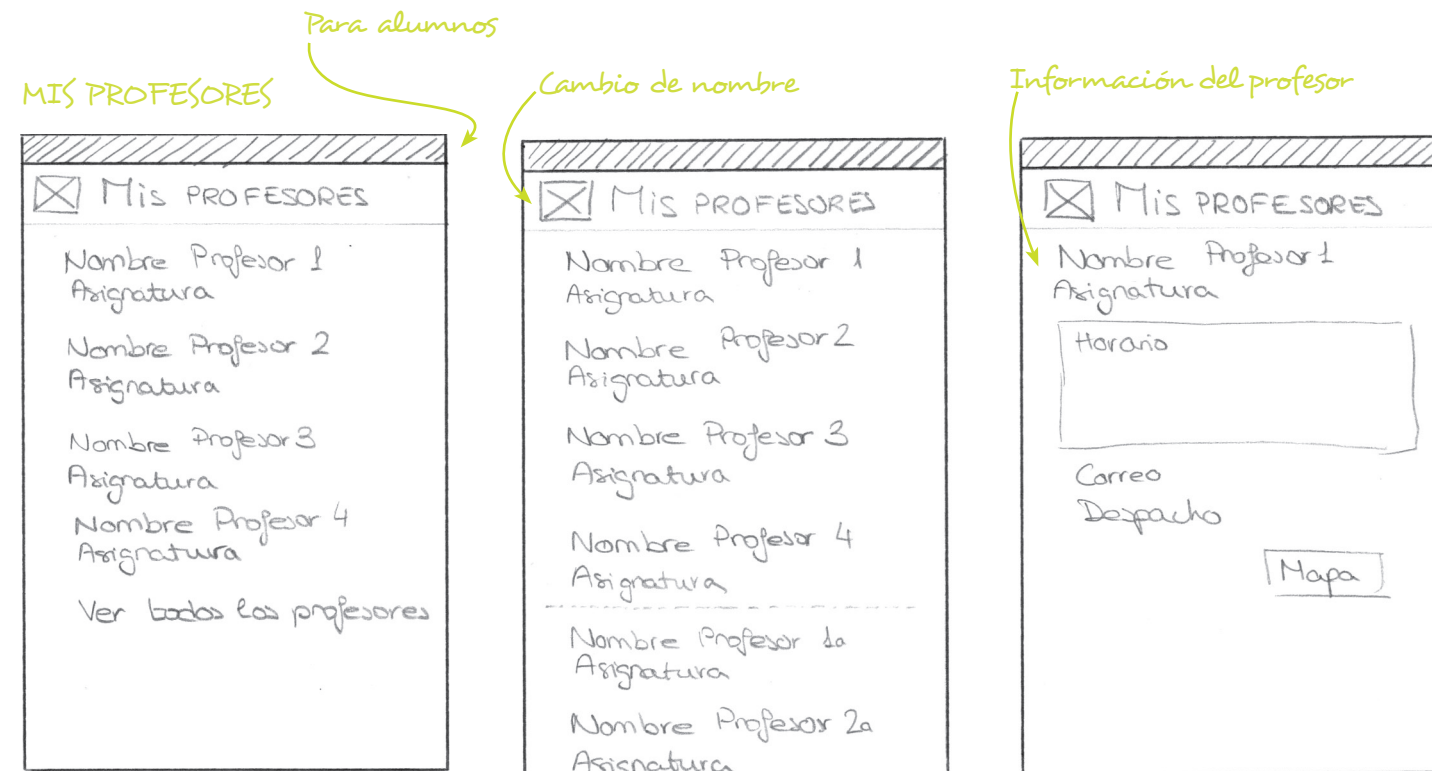 Para alumnos
MIS PROFESORES
Cambio de nombre
Información del profesor
Mis PROFESORES
Nombre Profesor 1
Asignatura
Nombre Profesor 2
Asignatura
Nombre Profesor 3
Asignatura
Nombre Profesor 4
Asignatura
Ver todos los profesores
Mis PROFESORES
Nombre Profesor 1
Asignatura
Nombre Profesor 2
Asignatura
Nombre Profesor 3
Asignatura
Nombre Profesor 4
Asignatura
Nombre Profesor 1a
Asignatura
Nombre Profesor 2a
Asignatura
Mis PROFESORES
Nombre Profesor 1
Asignatura
Horario
Correo
Despacho
Mapa